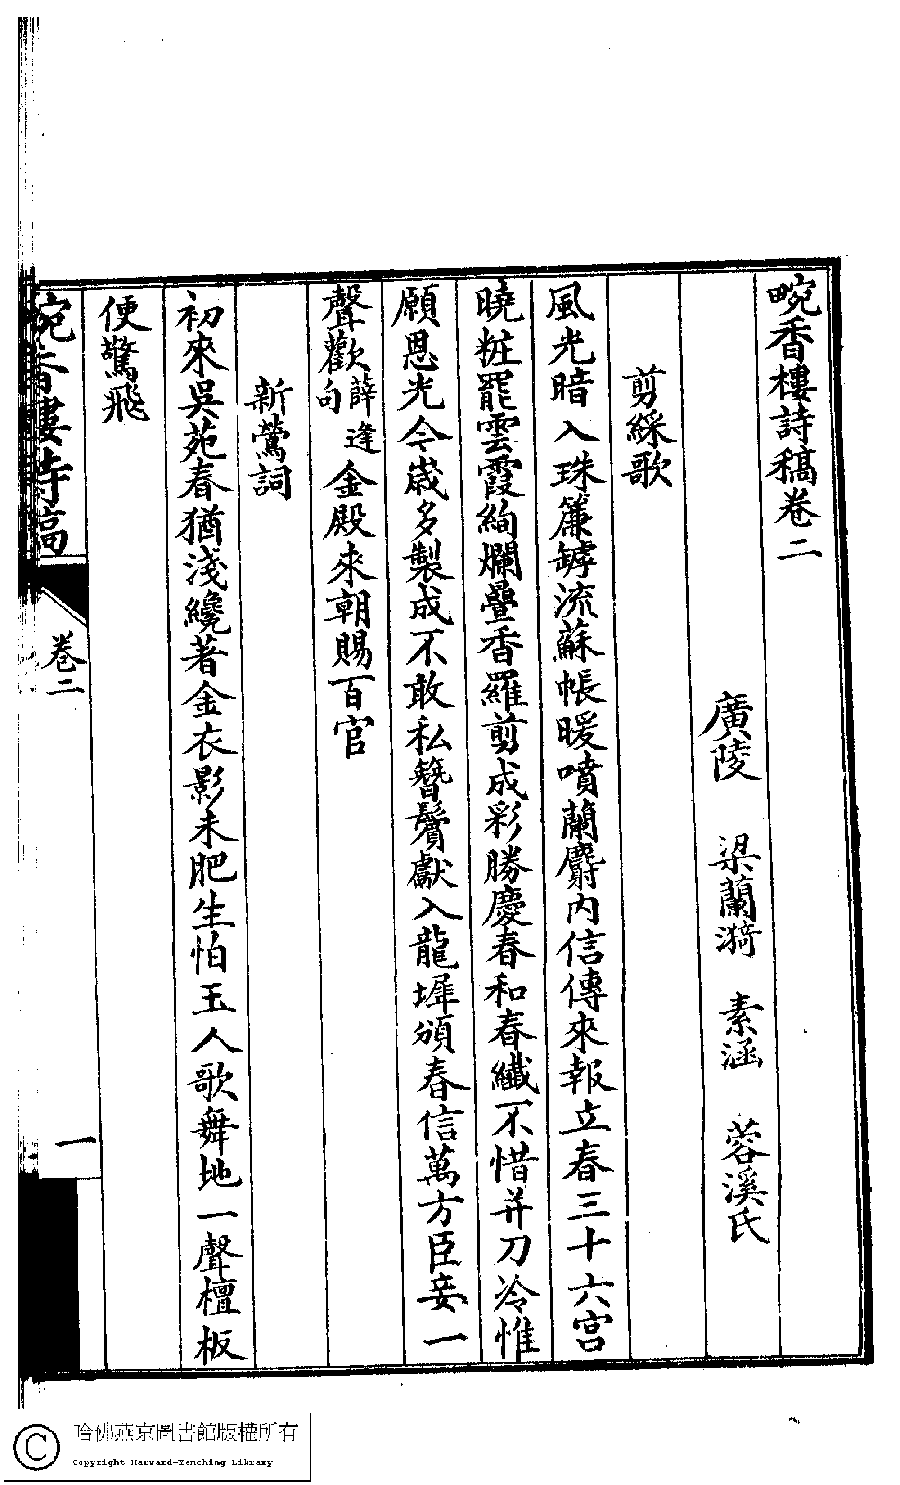 畹香樓詩稿卷二
廣陵　梁蘭漪　素涵　蓉溪氏
剪綵歌
風光暗入珠簾罅流蘇帳暖噴蘭麝内信傳來報立春三十六宮
曉粧罷雲霞絢爛疊香羅剪成彩勝慶春和春纖不惜并刀冷惟
願恩光今歲多製成不敢私簪鬢獻入龍墀頒春信萬方臣妾一
聲歡薛逢句金殿來朝賜百官
新鶯詞
初來吳苑春猶淺纔著金衣影未肥生怕玉人歌舞地一聲檀板
便驚飛
畹香樓詩稿
卷二
一
哈佛燕京圖書館版權所有
Copyright Harvard-Yenching Library